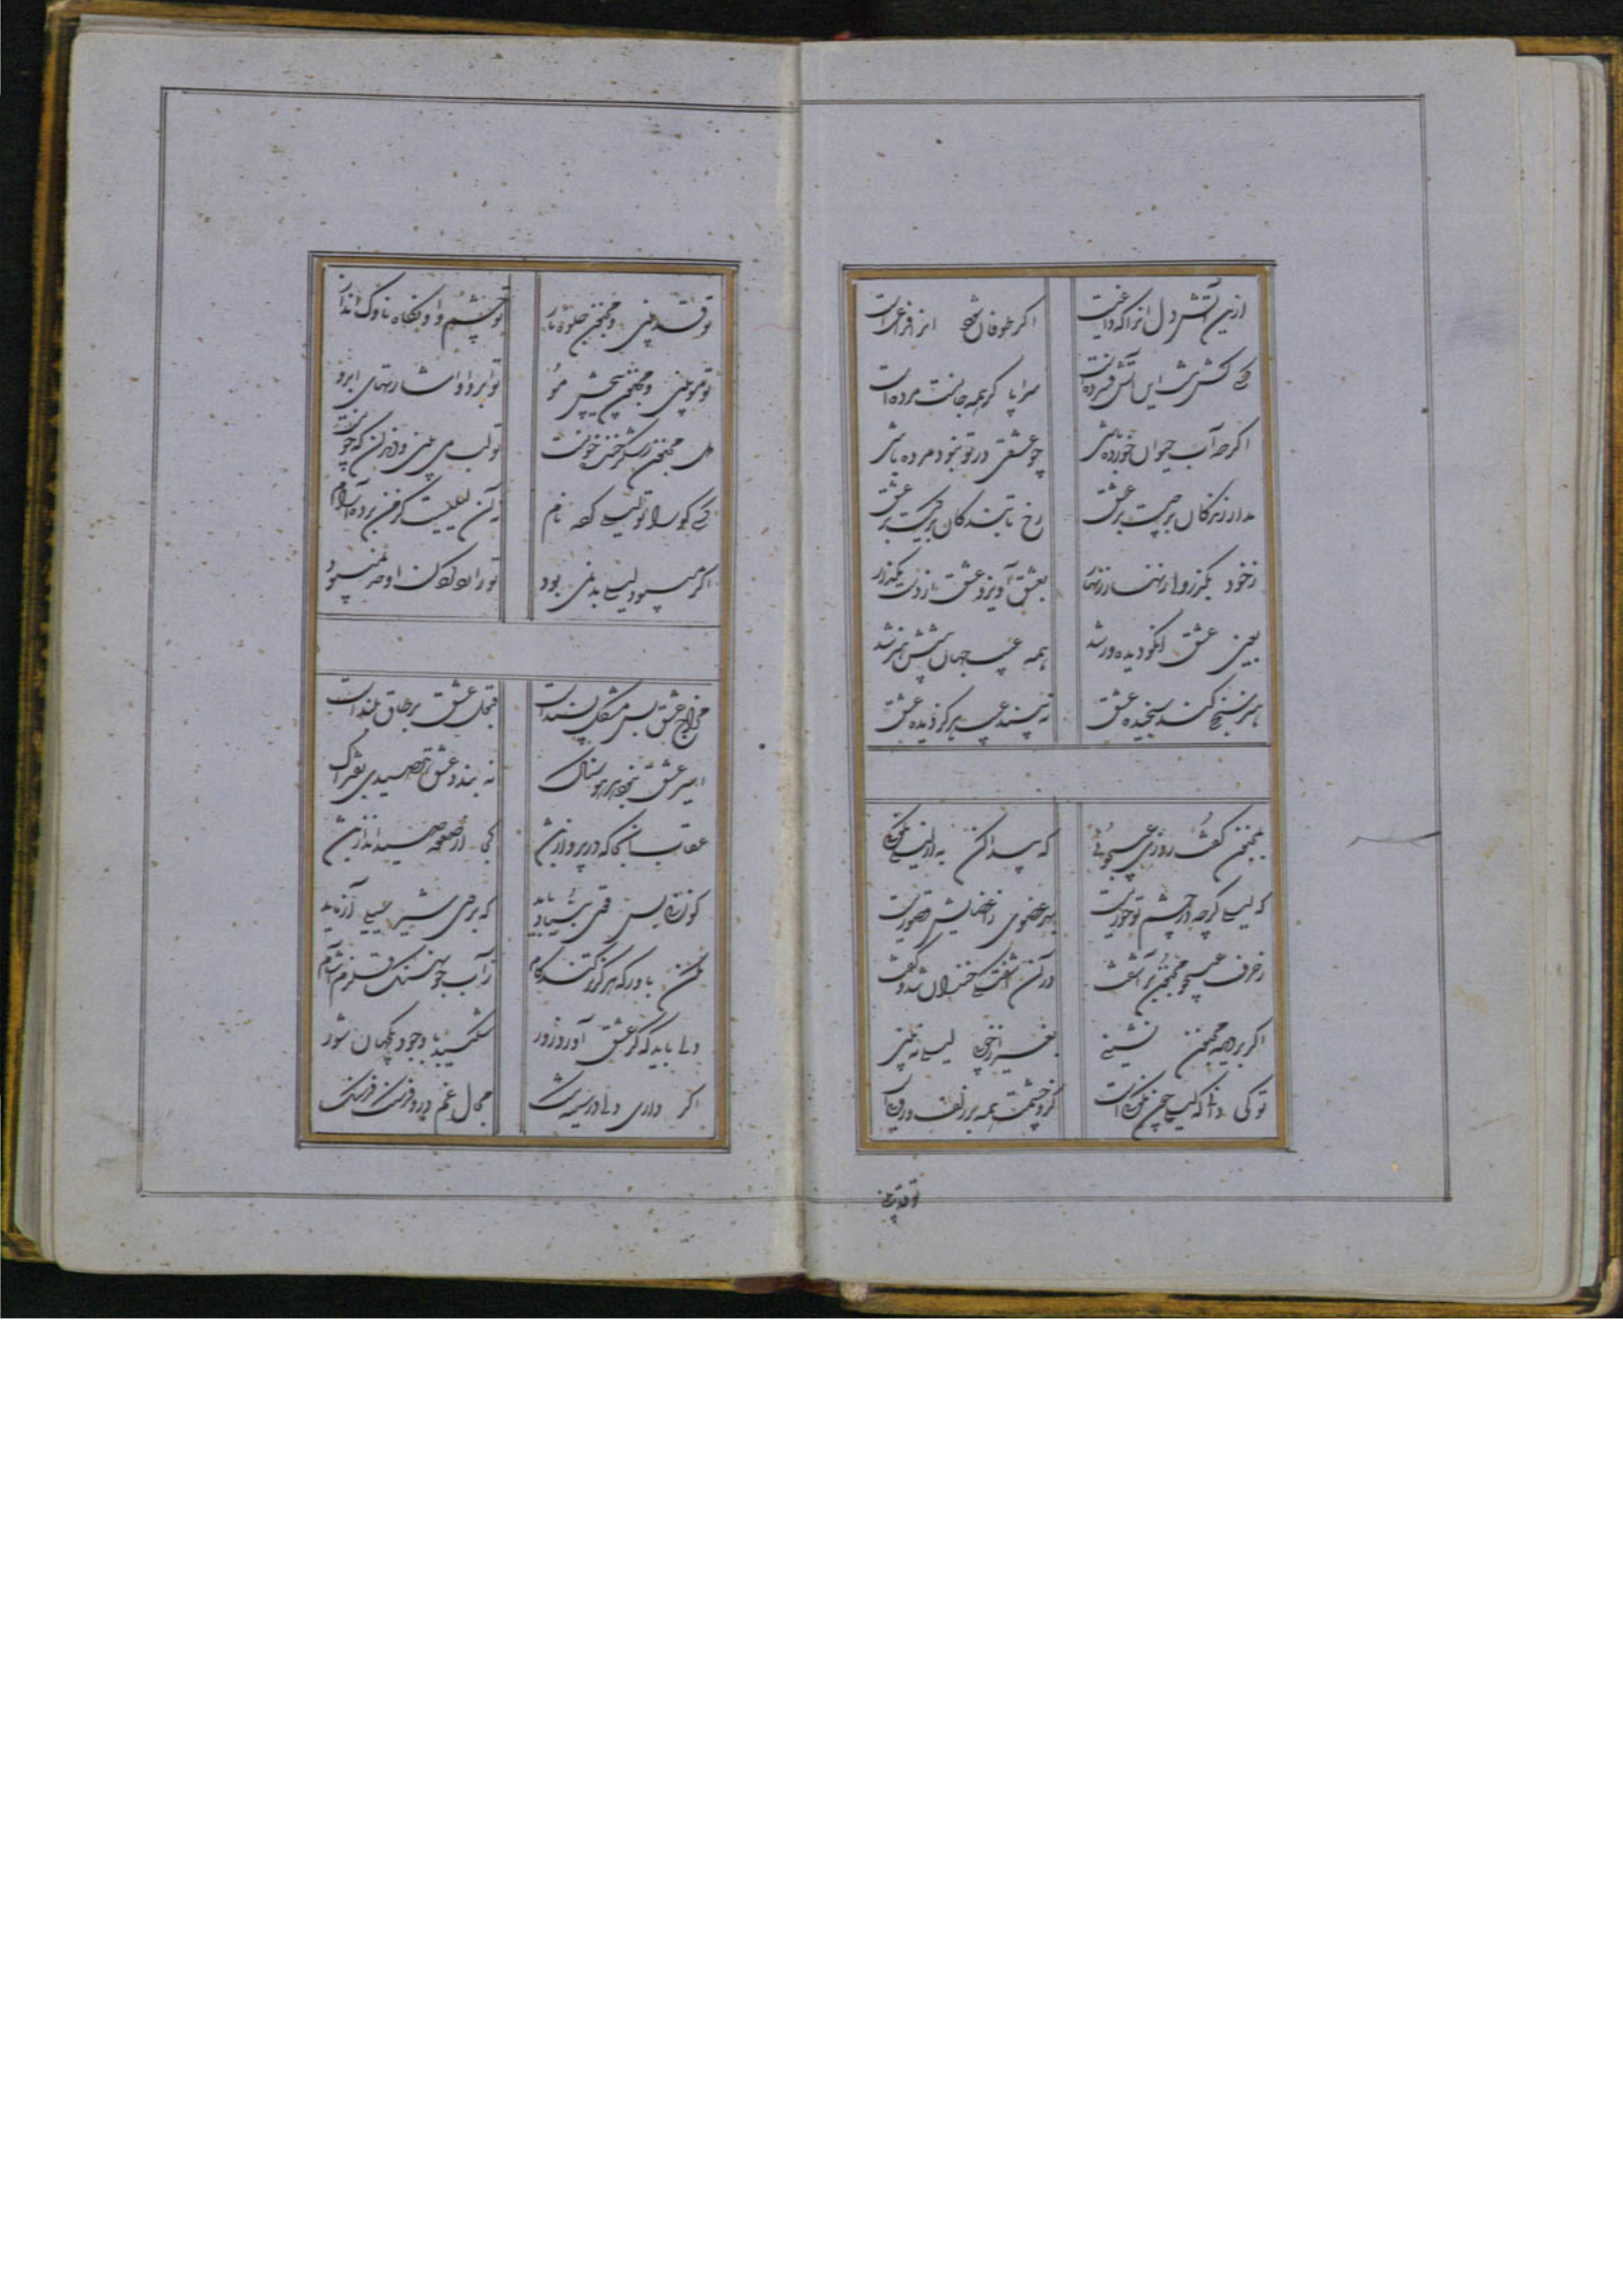 ازین آتش دل آنرا که داغیست
اگر طوفان شود او را فراغست
کسی کش نیست این آتش فسرده‌است
سراپا گر همه جانست مرده‌است
اگر صد آب حیوان خورده باشی
چو عشقی در تو نبود مرده باشی
مدار زندگان بر چیست بر عشق
رخ پایندگان بر کیست بر عشق
ز خود بگذر ولی زنهار زنهار
بعشق آویز و عشق از دست مگذار
بعین عشق آنکو دیده‌ور شد
همه عیب جهان پیشش هنر شد
هنر سنجی کند سنجیدهٔ عشق
نبیند عیب هرگز دیدهٔ عشق
بمجنون گفت روزی عیبجوئی
که پیدا کن به از لیلی نکوئی
که لیلی گرچه در چشم تو حوریست
بهر عضوی ز اعضایش قصوریست
ز حرف عیبجو مجنون برآشفت
در آن آشفتگی خندان شد و گفت
اگر بر دیدهٔ مجنون نشینی
بغیر از خوبی لیلی نبینی
تو کی دانی که لیلی چون نکوئی است
کزو چشمت همه بر زلف و روی است
تو قد بینی
تو قد بینی و مجنون جلوهٔ ناز
تو چشم و او نگاه ناوک انداز
تو مو بینی و مجنون پیچش مو
تو ابرو او اشارتهای ابرو
دل مجنون ز شکر خنده خونست
تو لب می‌بینی و دندان که چونست
کسی کو را تو لیلی کردهٔ نام
نه آن لیلیست کز من برده آرام
اگر می‌بود لیلی بد نمی‌بود
ترا رد کردن او حد نمی‌بود
مزاج عشق بس مشکل پسند است
قبول عشق بر طاق بلند است
شکار عشق نبود هر هوسناک
نه بندد عشق هر صیدی بفتراک
عقاب آنجا که در پرواز باشد
کجا از صعوه صید انداز باشد
گوزنی بس قوی بنیاد باید
که بر وی شیر سیلی آزماید
مکن باور که هرگز تر کند کام
ز آب جو نهنگ قلزم آشام
دلی باید که گر عشق آورد زور
شکیبد با وجود یک جهان شور
اگر داری دلی در سینهٔ تنگ
مجال غم در و فرسنگ فرسنگ